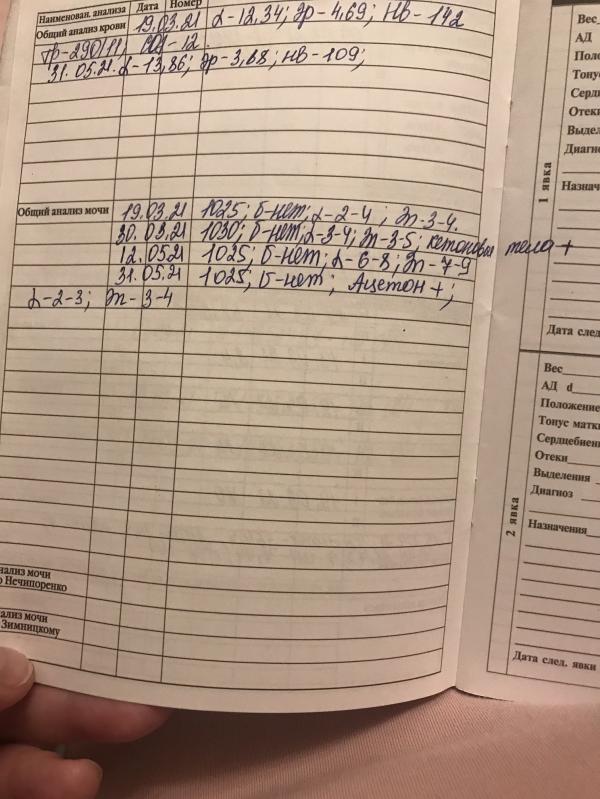 Наименован. анализа Дата Номер
Общий анализ крови 19.03.21 L-12,34; Эр-4,69; Нв-142
тр-290/11, СОЭ-12.
31.05.21. L-13,86; Эр-3,68; Нв-109;
Общий анализ мочи 19.03.21 1025; б-нет; L-2-4; Эп-3-4.
30.03.21 1030; б-нет; L-3-4; Эп-3-5; кетоновые тела +
12.05.21 1025; б-нет; L-6-8; Эп-7-9
31.05.21 1025; б-нет; Ацетон +;
L-2-3; Эп-3-4
нализ мочи
о Нечипоренко
ализ мочи
Зимницкому
1 явка
Вес
АД
Поло
Тонус
Сердц
Отеки
Выдел
Диагно
Назначе
Дата сле
2 явка
Вес
АД d
Положение
Тонус матк
Сердцебиени
Отеки
Выделения
Диагноз
Назначения
Дата след. явки